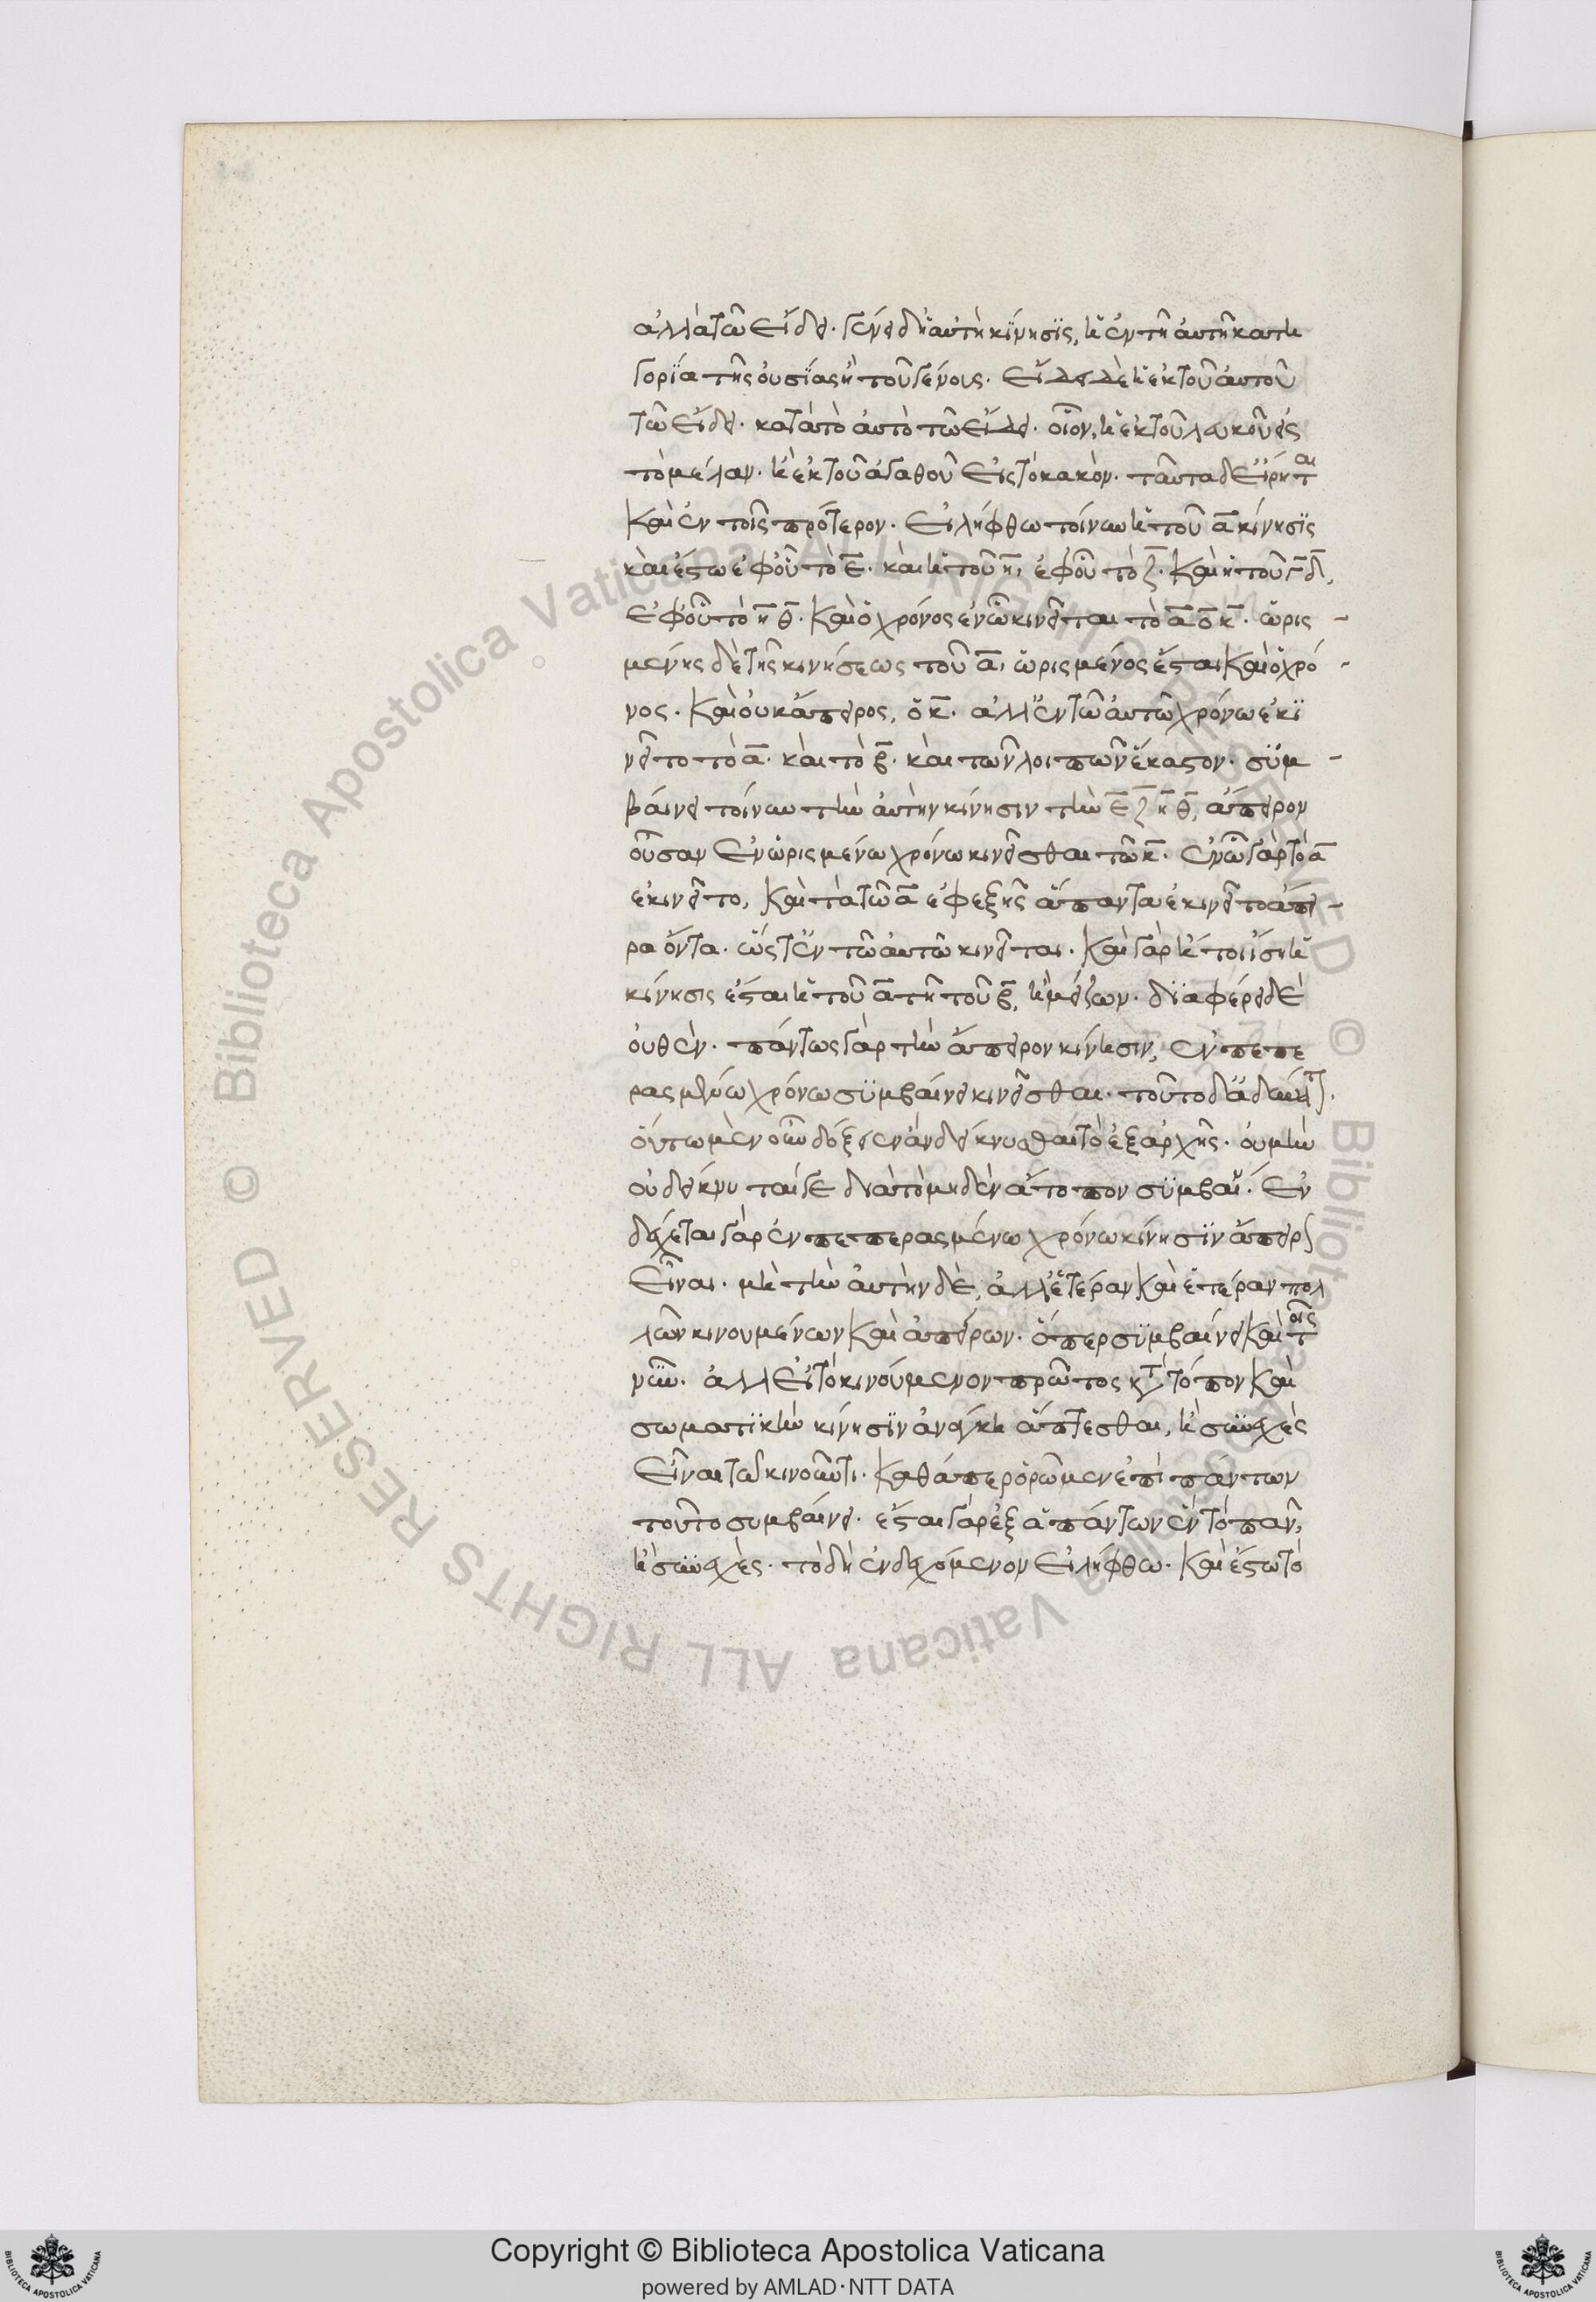 ἀλλὰ τῶ εἴδει. γένει δ' ἡ αὐτὴ κίνησϊς, ἡ ἐν τῆ αὐτῆ κατη
γορία τῆς οὐσίας ἢ τοῦ γένους. εἴδει δὲ ἡ ἐκ τοῦ αὐτοῦ
τῶ εἴδει. κατὰ τὸ αὐτὸ τῶ εἴδει. οἷον, ἡ ἐκ τοῦ λευκοῦ εἰς
τὸ μέλαν. ἢ ἐκ τοῦ ἀγαθοῦ εἰς τὸ κακὸν. ταῦτα δ' εἴρηται
καὶ ἐν τοῖς πρότερον. εἰλήφθω τοίνυν ἡ τοῦ α κίνησϊς
καὶ ἔστω ἐφ' οὗ τὸ ε. καὶ ἡ τοῦ η, ἐφ' οὗ τὸ ζ. καὶ ἡ τοῦ γδ,
ἐφ' οὗ τὸ η θ. καὶ ὁ χρόνος ἐν ὧ κινεῖται τὸ α ὁ κ. ὡρισ -
μένης δὲ τῆς κινήσεως τοῦ α, ὡρισμένος ἔσται καὶ ὁ χρό -
νος. καὶ οὐκ ἄπειρος, ὁ κ. ἀλλ' ἐν τῶ αὐτῶ χρόνω ἐκϊ
νεῖτο τὸ α. καὶ τὸ β. καὶ τῶν λοιπῶν ἕκαστον. σϋμ -
βαίνει τοίνυν τὴν αὐτὴν κίνησιν τὴν ε ζ η θ, ἄπειρον
οὖσαν ἐν ὡρισμένω χρόνω κινεῖσθαι τῶ κ. ἐν ὧ γὰρ τὸ α
ἐκινεῖτο, καὶ τὰ τῶ α ἐφεξῆς ἅπαντα ἐκινεῖτο ἄπει -
ρα ὄντα. ὥστ' ἐν τῶ αὐτῶ κινεῖται. καὶ γὰρ ἤτοι ἴση ἡ
κίνησις ἔσται ἡ τοῦ α τῆ τοῦ β, ἢ μείζων. δϊαφέρει δὲ
οὐθὲν. πάντως γὰρ τὴν ἄπειρον κίνησιν, ἐν πεπε
ρασμένω χρόνω σϋμβαίνει κινεῖσθαι. τοῦτο δ' ἀδύνατον.
οὕτω μὲν οὖν δόξειεν ἂν δείκνυσθαι τὸ ἐξ ἀρχῆς. οὐ μὴν
οὐ δείκνυταί γε διὰ τὸ μηδὲν ἄτοπον σϋμβαί. ἐν
δέχεται γὰρ ἐν πεπερασμένω χρόνω κίνησϊν ἄπειρον
εἶναι. μὴ τὴν αὐτὴν δὲ, ἀλλ' ἑτέραν καὶ ἑτέραν πολ
λῶν κινουμένων καὶ ἀπείρων. ὅπερ σϋμβαίνει καὶ τοῖς
νῦν. ἀλλ' εἰ τὸ κινούμενον πρώτος κατὰ τόπον καὶ
σωματϊκὴν κίνησϊν ἀνάγκη ἅπτεσθαι, ἢ συνεχὲς
εἶναι τῶ κινοῦντι. καθάπερ ὁρῶμεν ἐπὶ πάντων
τοῦτο συμβαίνει. ἔσται γὰρ ἐξ ἁπάντων ἓν τὸ πᾶν,
ἢ συνεχὲς. τὸ δὴ ἐνδεχόμενον εἰλήφθω. καὶ ἔστω τὸ
Copyright © Biblioteca Apostolica Vaticana
powered by AMLAD·NTT DATA